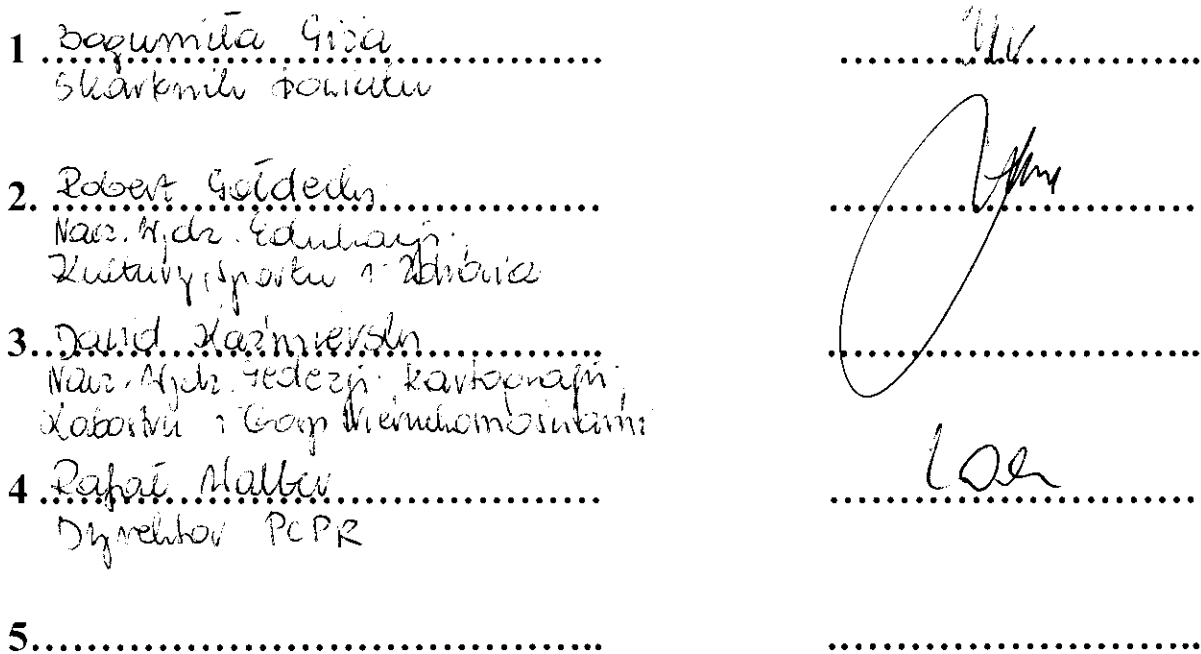 1 Bogumiła Giża
Skarbnik Powiatu
2. Robert Gołdecki
Nacz. Wydz. Edukacji,
Kultury, Sportu i Zdrowia
3. Dawid Kaźmierski
Nacz. Wydz. Geodezji, Kartografii,
Katastru i Gosp Nieruchomościami
4 Rafał Walter
Dyrektor PCPR
5.